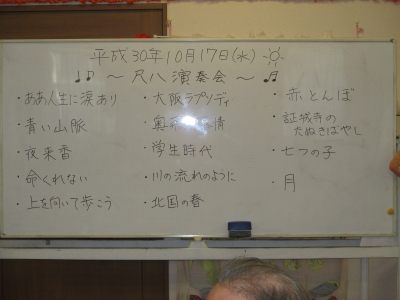 平成30年10月17日(水)
～尺八演奏会～
・ああ人生に涙あり
・青い山脈
・夜来香
・命くれない
・上を向いて歩こう
・大阪ラプソディ
・奥 情
・学生時代
・川の流れのように
・北国の春
・赤とんぼ
・証城寺の
たぬきばやし
・七つの子
・月